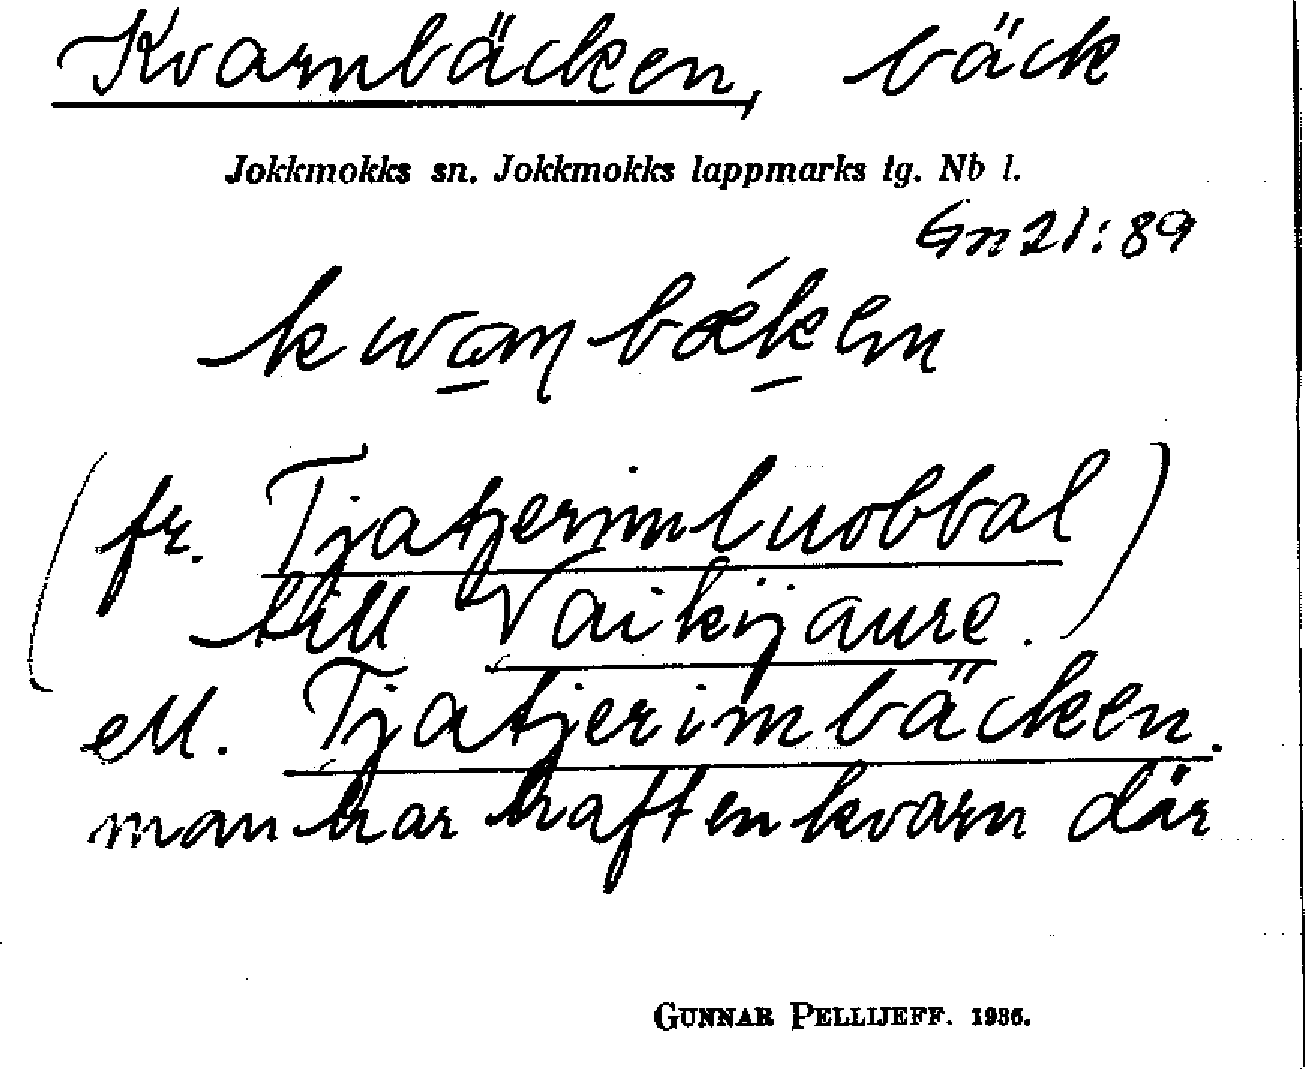 Kvarnbäcken, bäck
Jokkmokks sn. Jokkmokks lappmarks tg. Nb l.
Gn 21:89
(fr. Tjatjerimluobbal
till Vaikijaure.)
ell. Tjatjerimbäcken.
man har haft en kvarn där
GUNNAR PELLIJEFF. 1936.